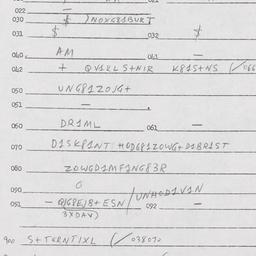 022 —
030 $ )NOXG81BURT
031 $ 032 $
040 AM 041 —
042 + QV1XLS+NIR K81S+NS (/066
050 UNG81ZOJG+
051 —
060 DR1ML 061 —
070 D1SK81NT HOD681ZOWG+D1BR1ST
080 ZOWGD1MF1NG83R
090 0
091 — QJG8EJ8+ESN /UNHOD1V1N 092 —
(3XDAV)
900 S+TERNTIXL (/038070